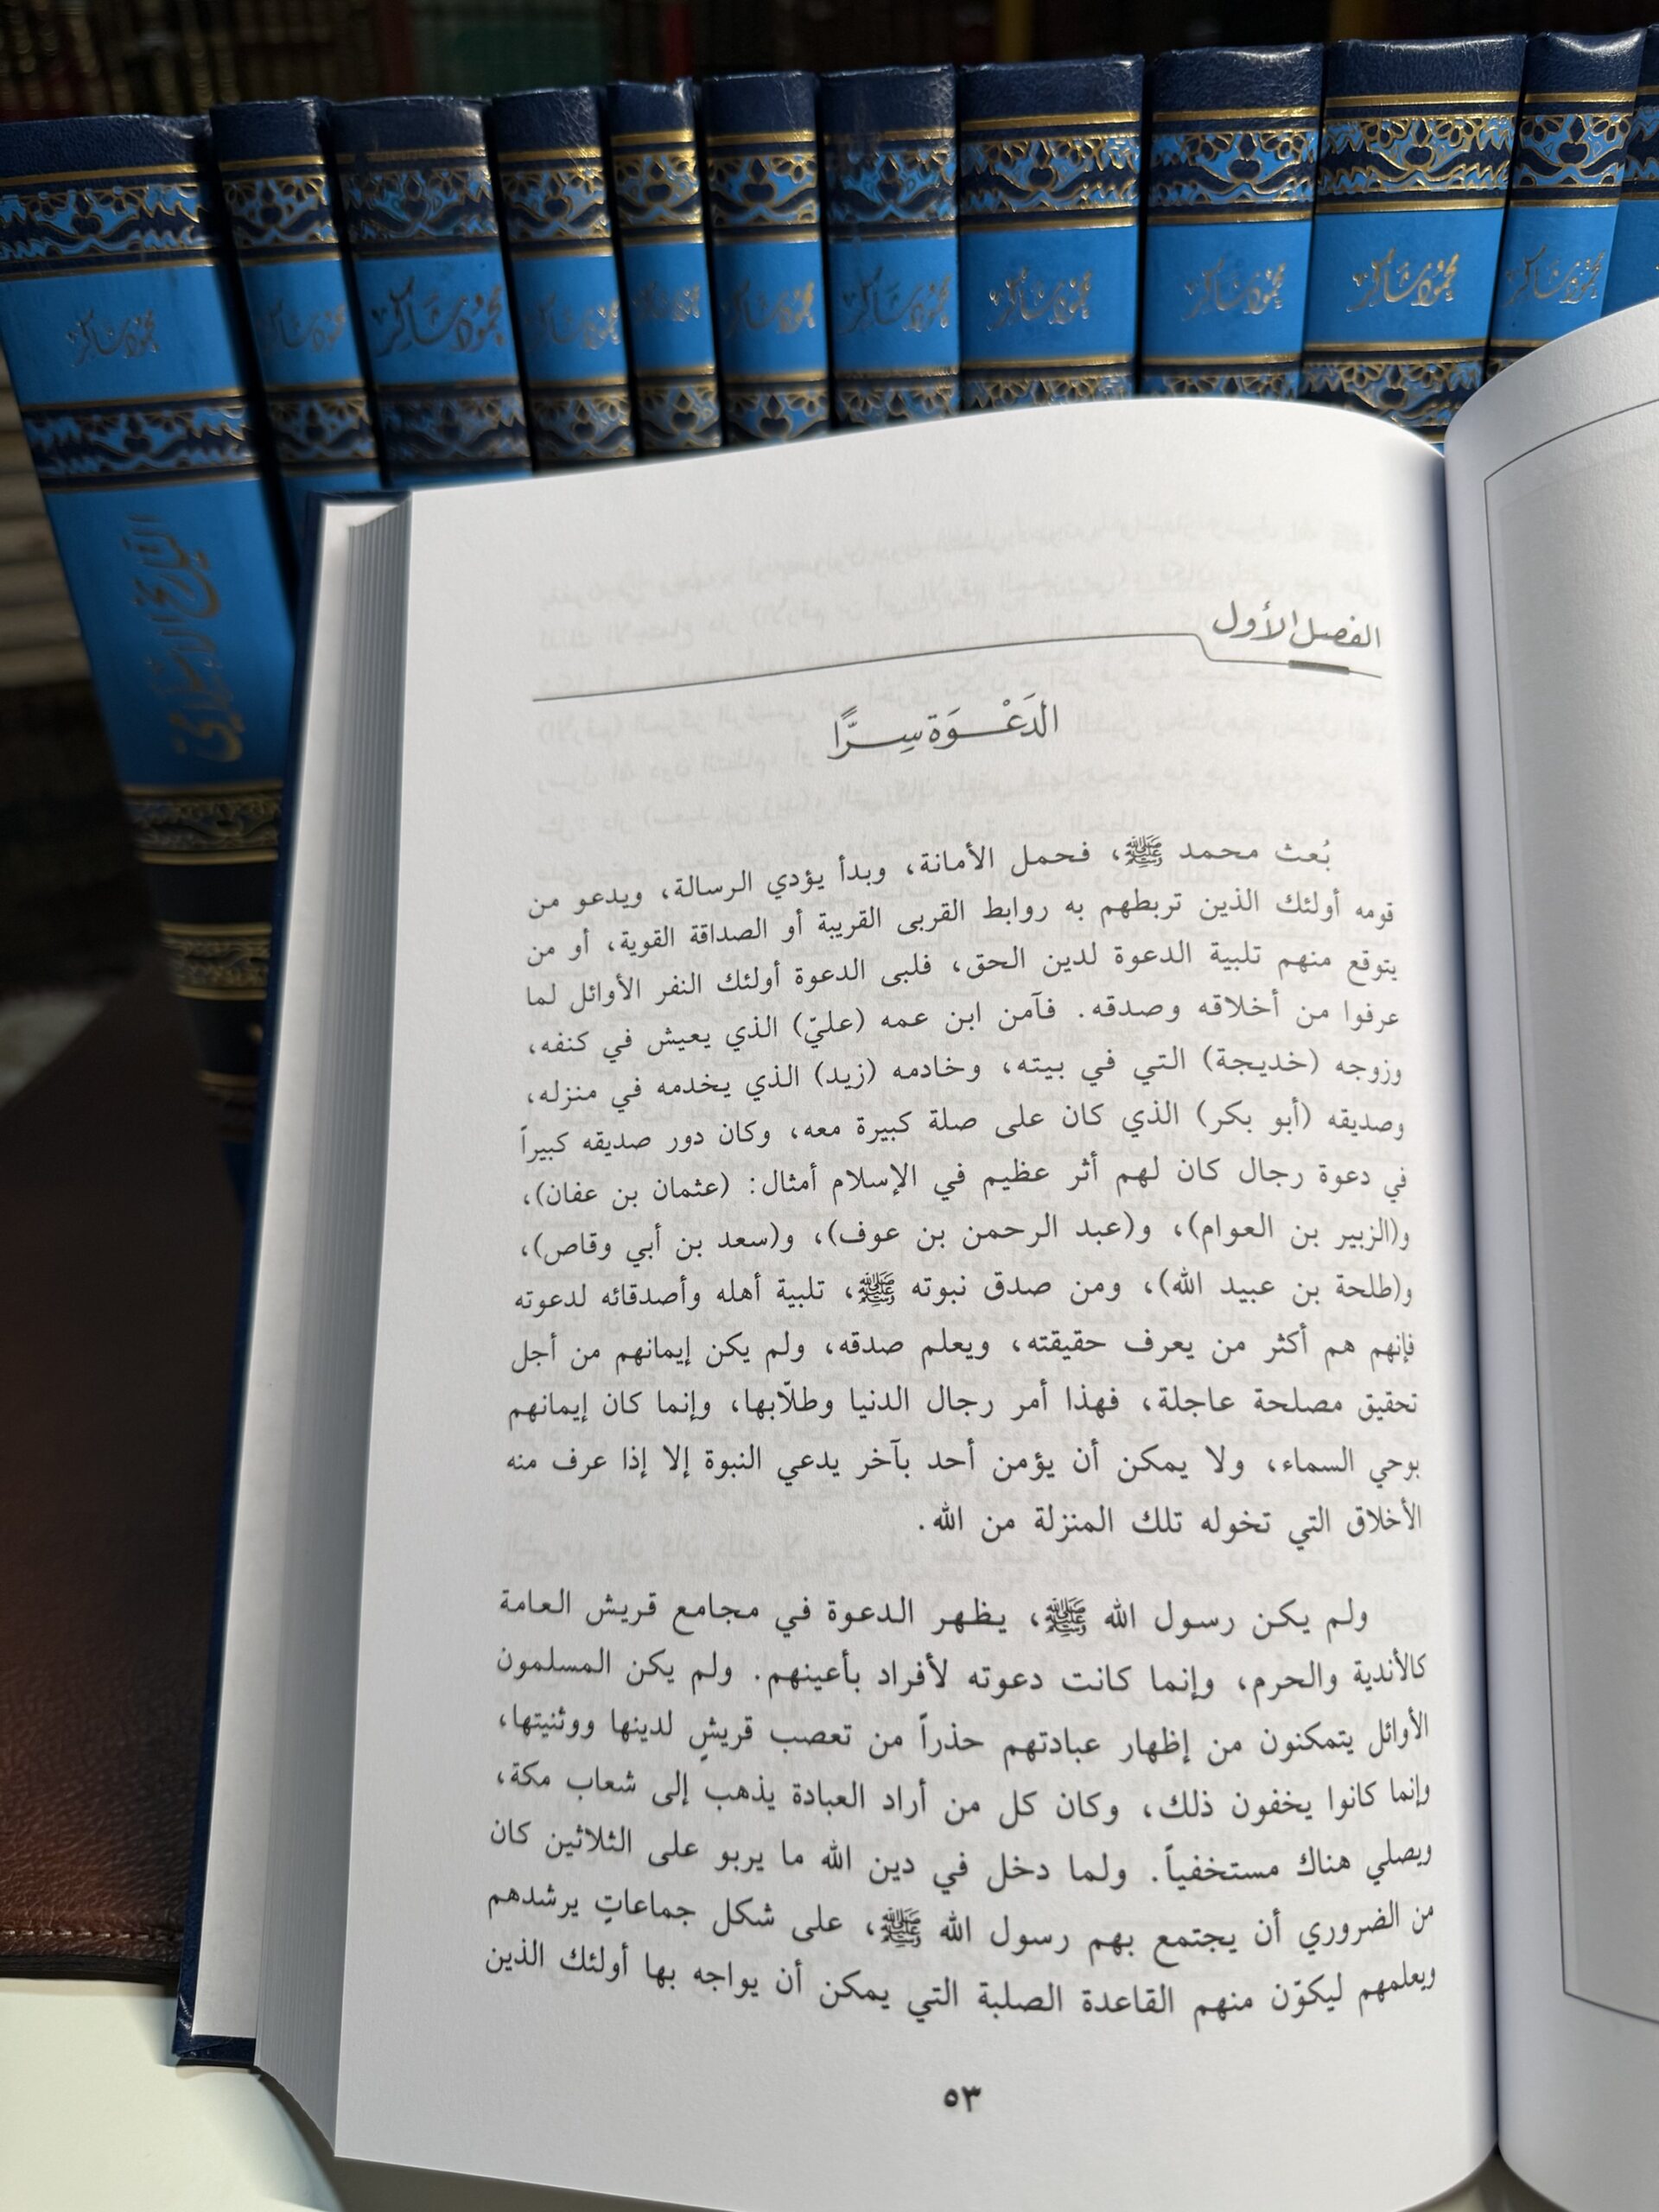 محمود شاكر
محمود شاكر
محمود شاكر
محمود شاكر
محمود شاكر
محمود شاكر
محمود شاكر
محمود شاكر
محمود شاكر
محمود شاكر
محمود شاكر
التاريخ الإسلامي
الفصل الأول
الدَعْـوَة سِـرًّا
بُعث محمد ﷺ، فحمل الأمانة، وبدأ يؤدي الرسالة، ويدعو من
قومه أولئك الذين تربطهم به روابط القربى القريبة أو الصداقة القوية، أو من
يتوقع منهم تلبية الدعوة لدين الحق، فلبى الدعوة أولئك النفر الأوائل لما
عرفوا من أخلاقه وصدقه. فآمن ابن عمه (عليّ) الذي يعيش في كنفه،
وزوجه (خديجة) التي في بيته، وخادمه (زيد) الذي يخدمه في منزله،
وصديقه (أبو بكر) الذي كان على صلة كبيرة معه، وكان دور صديقه كبيراً
في دعوة رجال كان لهم أثر عظيم في الإسلام أمثال: (عثمان بن عفان)،
و(الزبير بن العوام)، و(عبد الرحمن بن عوف)، و(سعد بن أبي وقاص)،
و(طلحة بن عبيد الله)، ومن صدق نبوته ﷺ، تلبية أهله وأصدقائه لدعوته
فإنهم هم أكثر من يعرف حقيقته، ويعلم صدقه، ولم يكن إيمانهم من أجل
تحقيق مصلحة عاجلة، فهذا أمر رجال الدنيا وطلّابها، وإنما كان إيمانهم
بوحي السماء، ولا يمكن أن يؤمن أحد بآخر يدعي النبوة إلا إذا عرف منه
الأخلاق التي تخوله تلك المنزلة من الله.
ولم يكن رسول الله ﷺ، يظهر الدعوة في مجامع قريش العامة
كالأندية والحرم، وإنما كانت دعوته لأفراد بأعينهم. ولم يكن المسلمون
الأوائل يتمكنون من إظهار عبادتهم حذراً من تعصب قريشٍ لدينها ووثنيتها،
وإنما كانوا يخفون ذلك، وكان كل من أراد العبادة يذهب إلى شعاب مكة،
ويصلي هناك مستخفياً. ولما دخل في دين الله ما يربو على الثلاثين كان
من الضروري أن يجتمع بهم رسول الله ﷺ، على شكل جماعاتٍ يرشدهم
ويعلمهم ليكوّن منهم القاعدة الصلبة التي يمكن أن يواجه بها أولئك الذين
٥٣